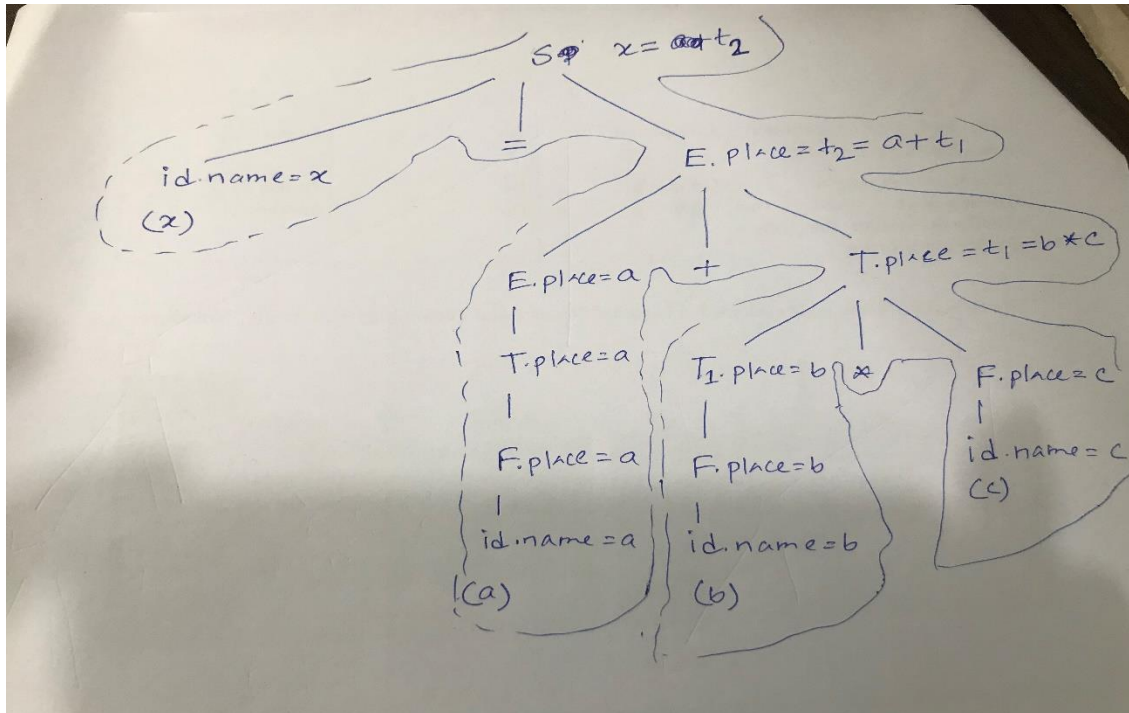 S x = t2
=
id.name = x
(x)
E.place = t2 = a + t1
E.place = a
+
T.place = t1 = b * c
T.place = a
T1.place = b
*
F.place = c
F.place = a
F.place = b
id.name = c
(c)
id.name = a
id.name = b
(a)
(b)